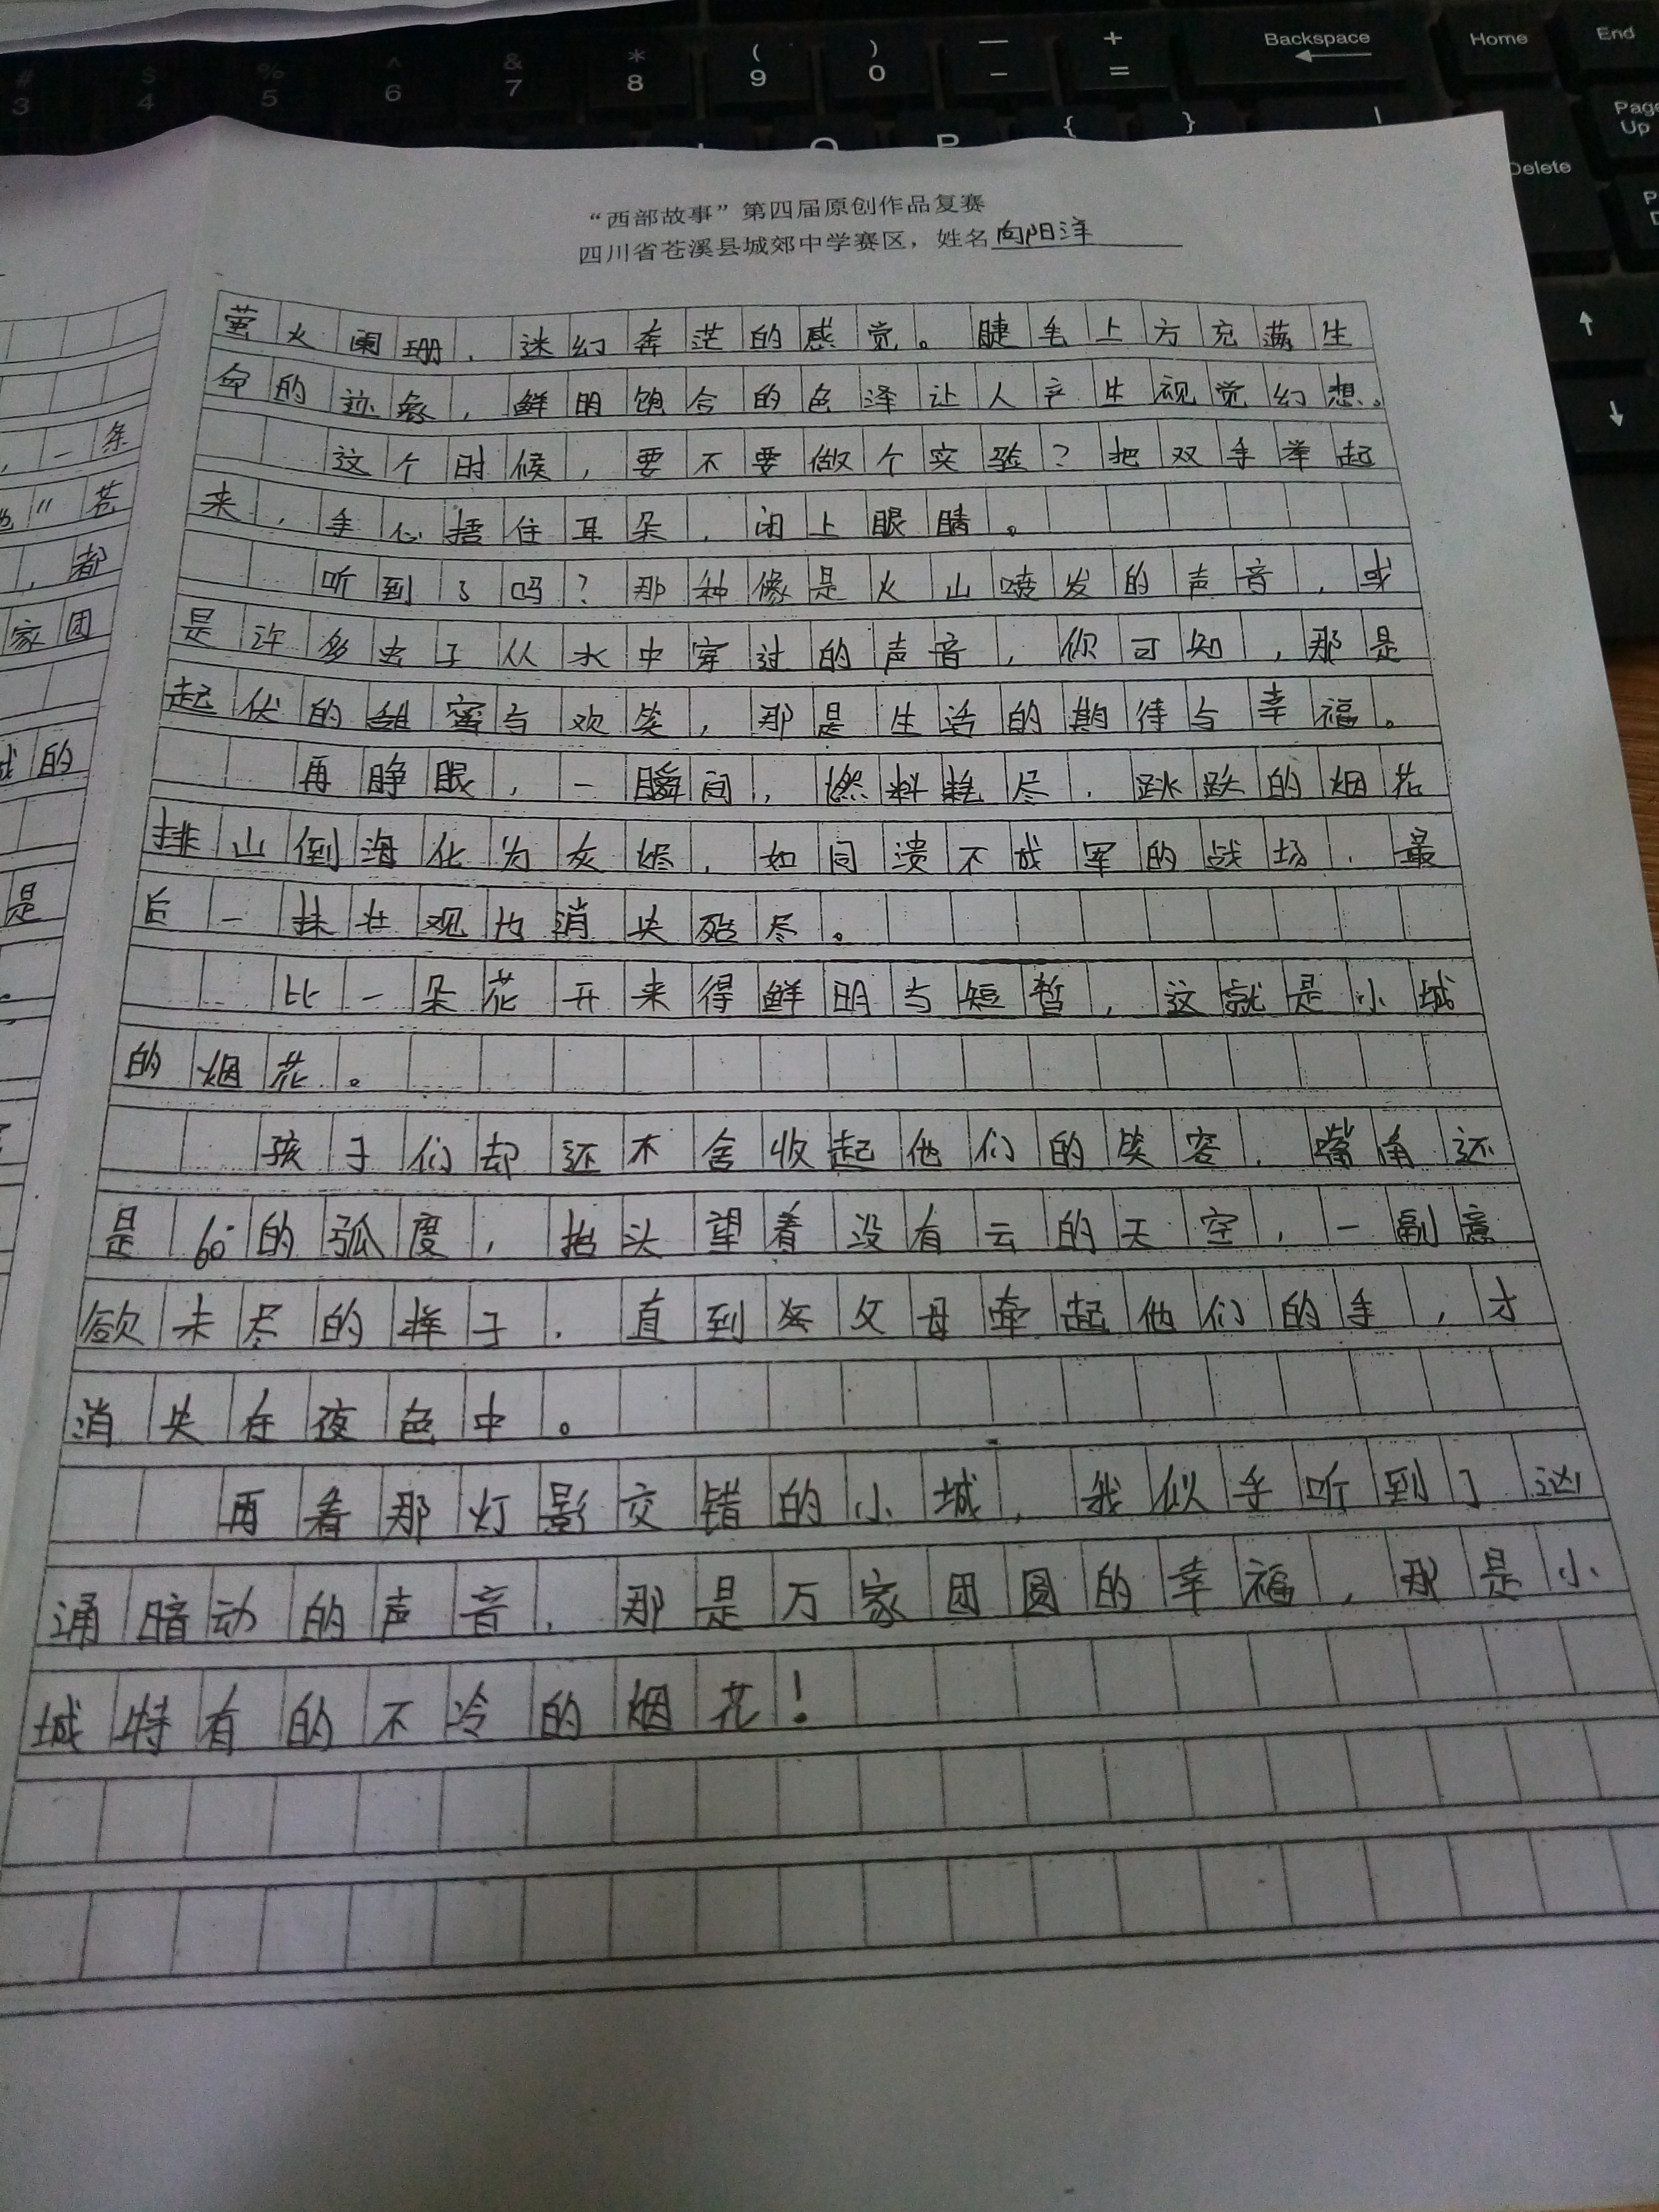 # 3
$ 4
% 5
^ 6
& 7
* 8
( 9
) 0
— -
+ =
Backspace
Home
End
Page Up
Delete
{
}
O
P
“西部故事”第四届原创作品复赛
四川省苍溪县城郊中学赛区，姓名向阳洋
萤火阑珊，迷幻奔茫的感觉。睫毛上方充满生
命的迹象，鲜明饱合的色泽让人产生视觉幻想。
这个时候，要不要做个实验？把双手举起
来，手心捂住耳朵，闭上眼睛。
听到了吗？那种像是火山喷发的声音，或
是许多虫子从水中穿过的声音，你可知，那是
起伏的甜蜜与欢笑，那是生活的期待与幸福。
再睁眼，一瞬间，燃料耗尽，跳跃的烟花
排山倒海化为灰烬，如同溃不成军的战场，最
后一抹壮观也消失殆尽。
比一朵花开来得鲜明与短暂，这就是小城
的烟花。
孩子们却还不舍收起他们的笑容，嘴角还
是60°的弧度，抬头望着没有云的天空，一副意
欲未尽的样子，直到父母牵起他们的手，才
消失在夜色中。
再看那灯影交错的小城，我似乎听到了汹
涌暗动的声音，那是万家团圆的幸福，那是小
城特有的不冷的烟花！
，一条
”苍
，都
家团
的
是